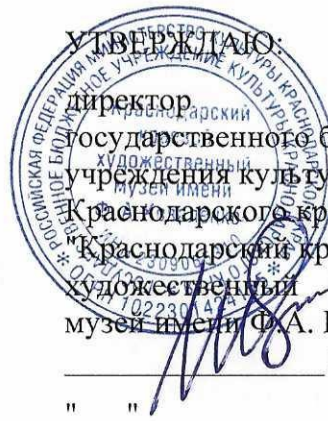 УТВЕРЖДАЮ:
директор
государственного б
учреждения культу
Краснодарского кр
"Краснодарский кр
художественный
музей имени Ф.А. К
" "
РОССИЙСКАЯ ФЕДЕРАЦИЯ МИНИСТЕРСТВО КУЛЬТУРЫ КРАСНОДАРСКОГО
БЮДЖЕТНОЕ УЧРЕЖДЕНИЕ КУЛЬТУРЫ
Краснодарский
художественный
музей имени